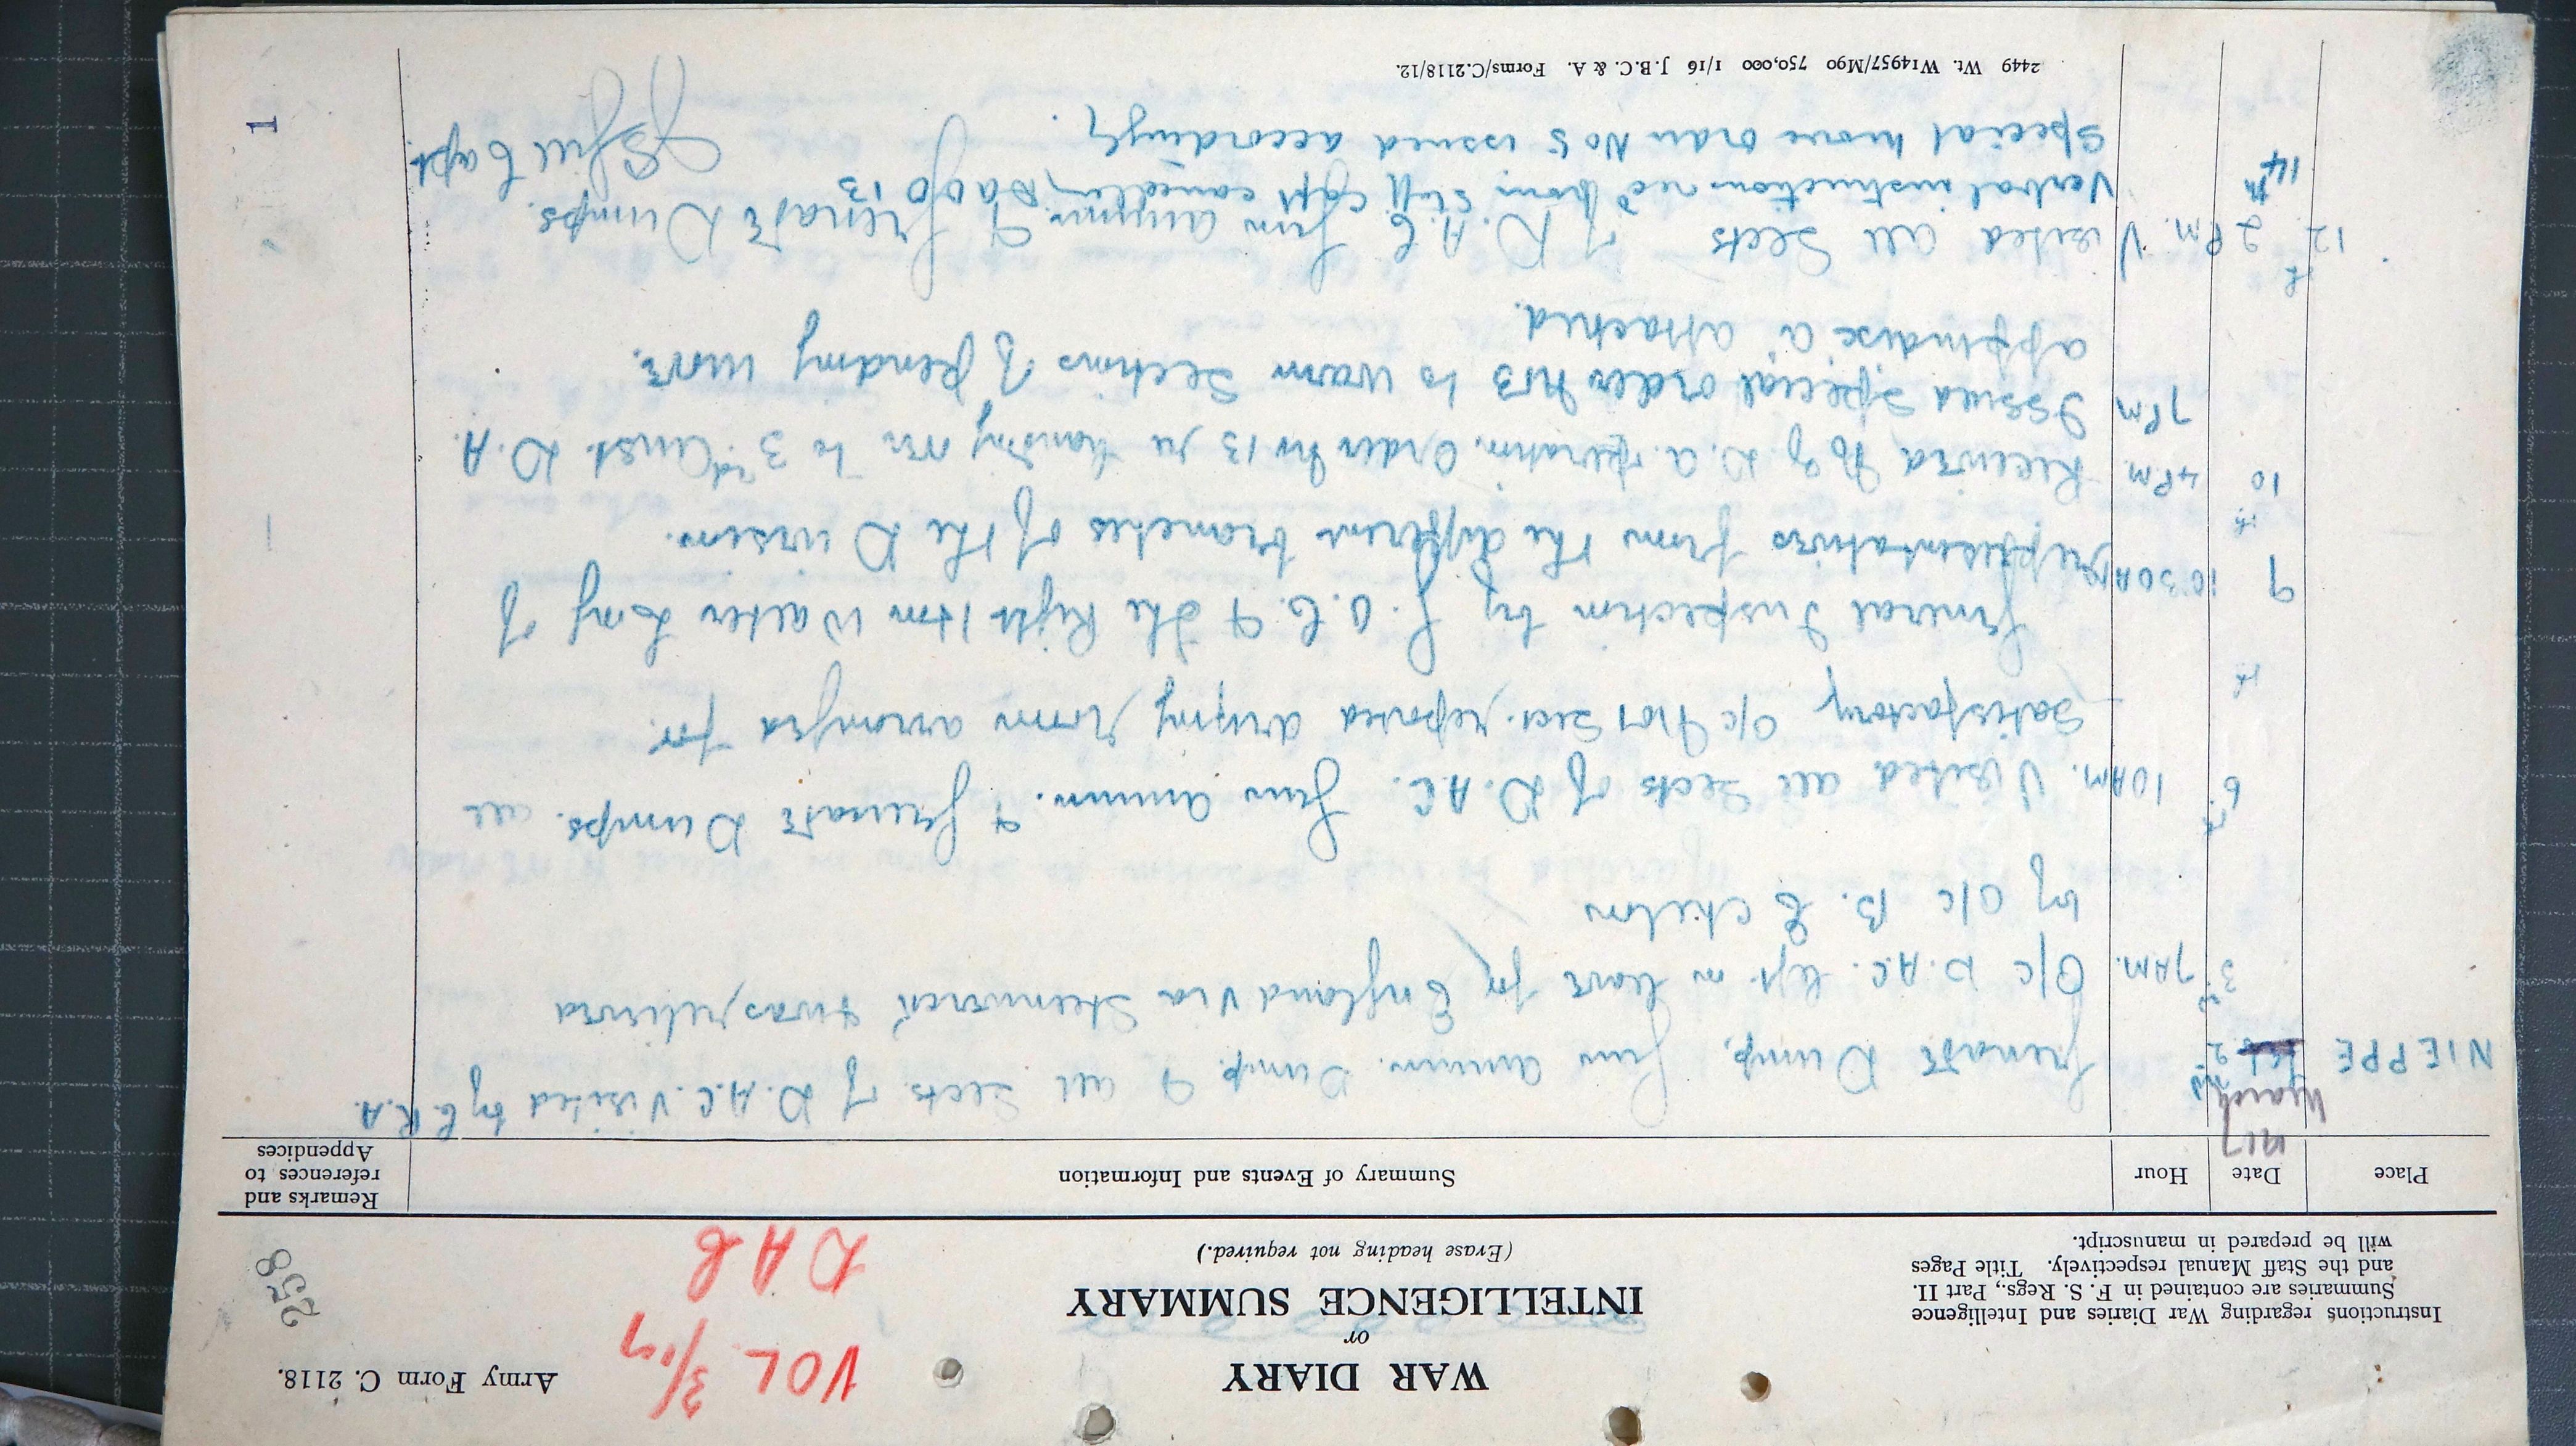 Army Form C. 2118.
WAR DIARY
or
INTELLIGENCE SUMMARY
(Erase heading not required.)
Instructions regarding War Diaries and Intelligence
Summaries are contained in F. S. Regs., Part II.
and the Staff Manual respectively. Title Pages
will be prepared in manuscript.
VOL 3/17
DAC
258
Place Date Hour Summary of Events and Information Remarks and references to Appendices
1917
March
NIEPPE 2nd Grenade Dump, Gun Ammn. Dump & all Sects of D.A.C. visited by C.R.A.
3rd 7AM. O/c D.A.C. left on leave for England via Steenwerck & was relieved
by O/c B. Echelon
6th 10AM. Visited all Sects of D.A.C. Gun Ammn. & Grenade Dumps. all
satisfactory O/c No1 Sect. reported arrange for.
9th 10.30AM General Inspection by G.O.C. & the Right Hon Walter Long of
representatives from the different branches of the Division.
10th 4PM. Received D.A. Operation Order No 13 re handing over to 3rd Aust. D.A.
7PM Issued special order No3 to warn Sections of pending move.
appendix "a" attached.
12th 2PM. Visited all Sects of D.A.C. Gun Ammn. & Grenade Dumps.
14th Verbal instructions recd from Staff Capt cancelling DAO/O 13
Special move order No 5 issued accordingly.
Capt.
2449 Wt. W14957/M90 750,000 1/16 J.B.C. & A. Forms/C.2118/12.
1